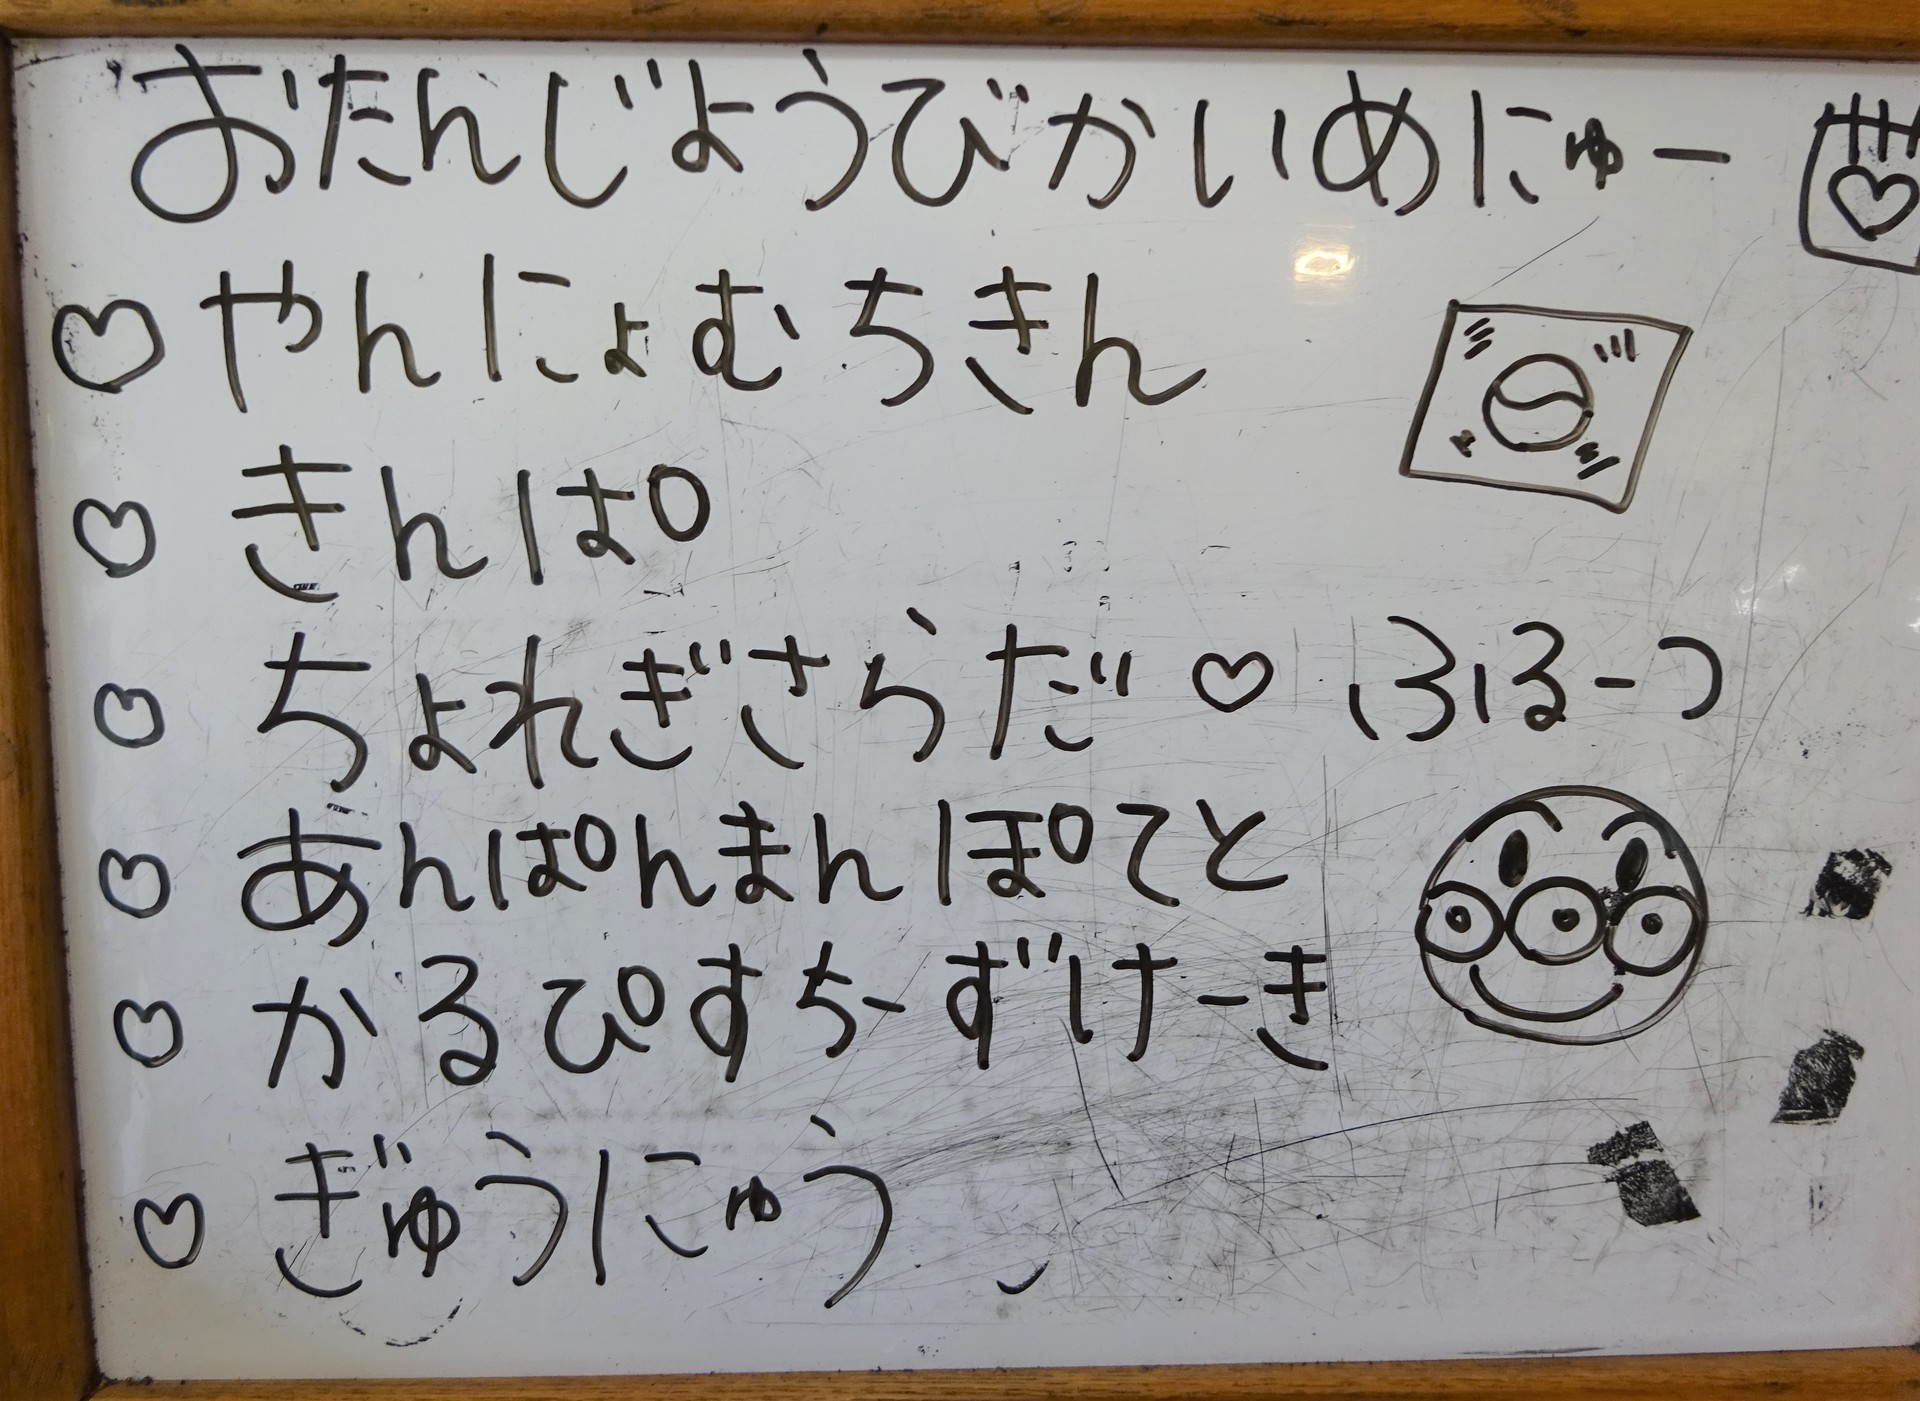 おたんじようびかいめにゅー
やんにょむちきん
きんぱ
ちょれぎさらだ♡ふるーつ
あんぱんまんぽてと
かるぴすちーずけーき
ぎゅうにゅう